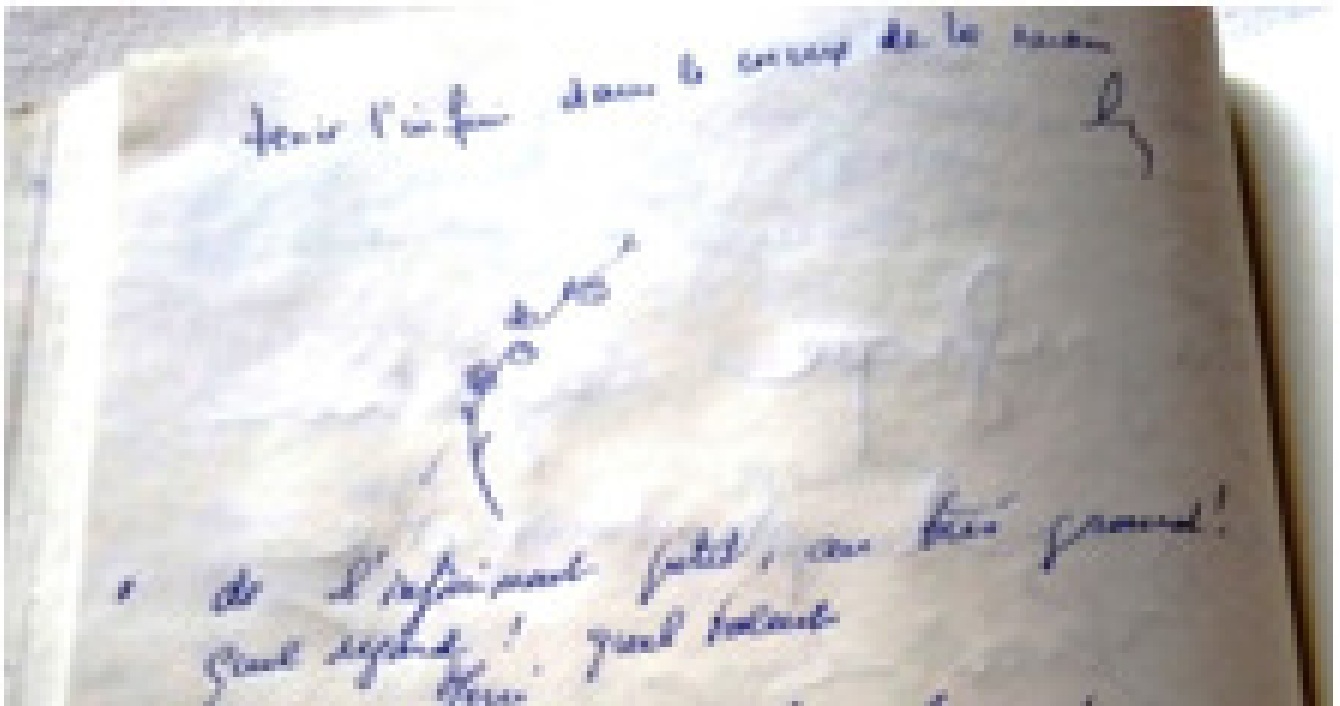 tenir l'infini dans le creux de la main
de l'infiniment petit, au très grand!
quel regard! quel talent